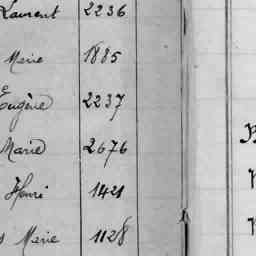 Laurent 2236
Marie 1885
Eugène 2237
Marie 2676
Henri 1421
s Marie 1128